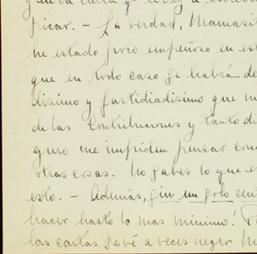 ficar. - La verdad, Mamasi
he estado pero
que en todo caso se habrán de
dísimo y fastidiadísimo que m
de las Contribuciones y tanto di
guro me impiden pensar en
otras cosas. No sabes lo que e
esto. - Además, sin un solo cen
hacer harto lo mas mínimo!
las cartas se vé a veces negro